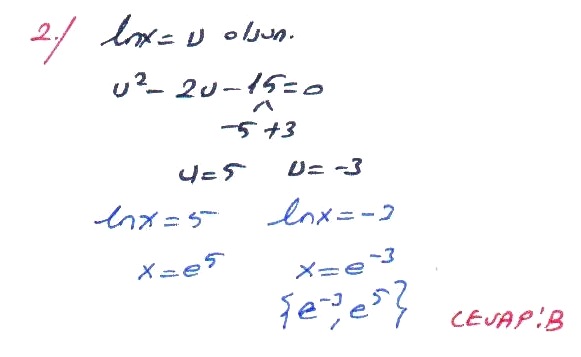 2./ lnx = u olsun.
u² - 2u - 15 = 0
-5 +3
u = 5 u = -3
lnx = 5 lnx = -3
x = e⁵ x = e⁻³
{e⁻³, e⁵} CEVAP: B